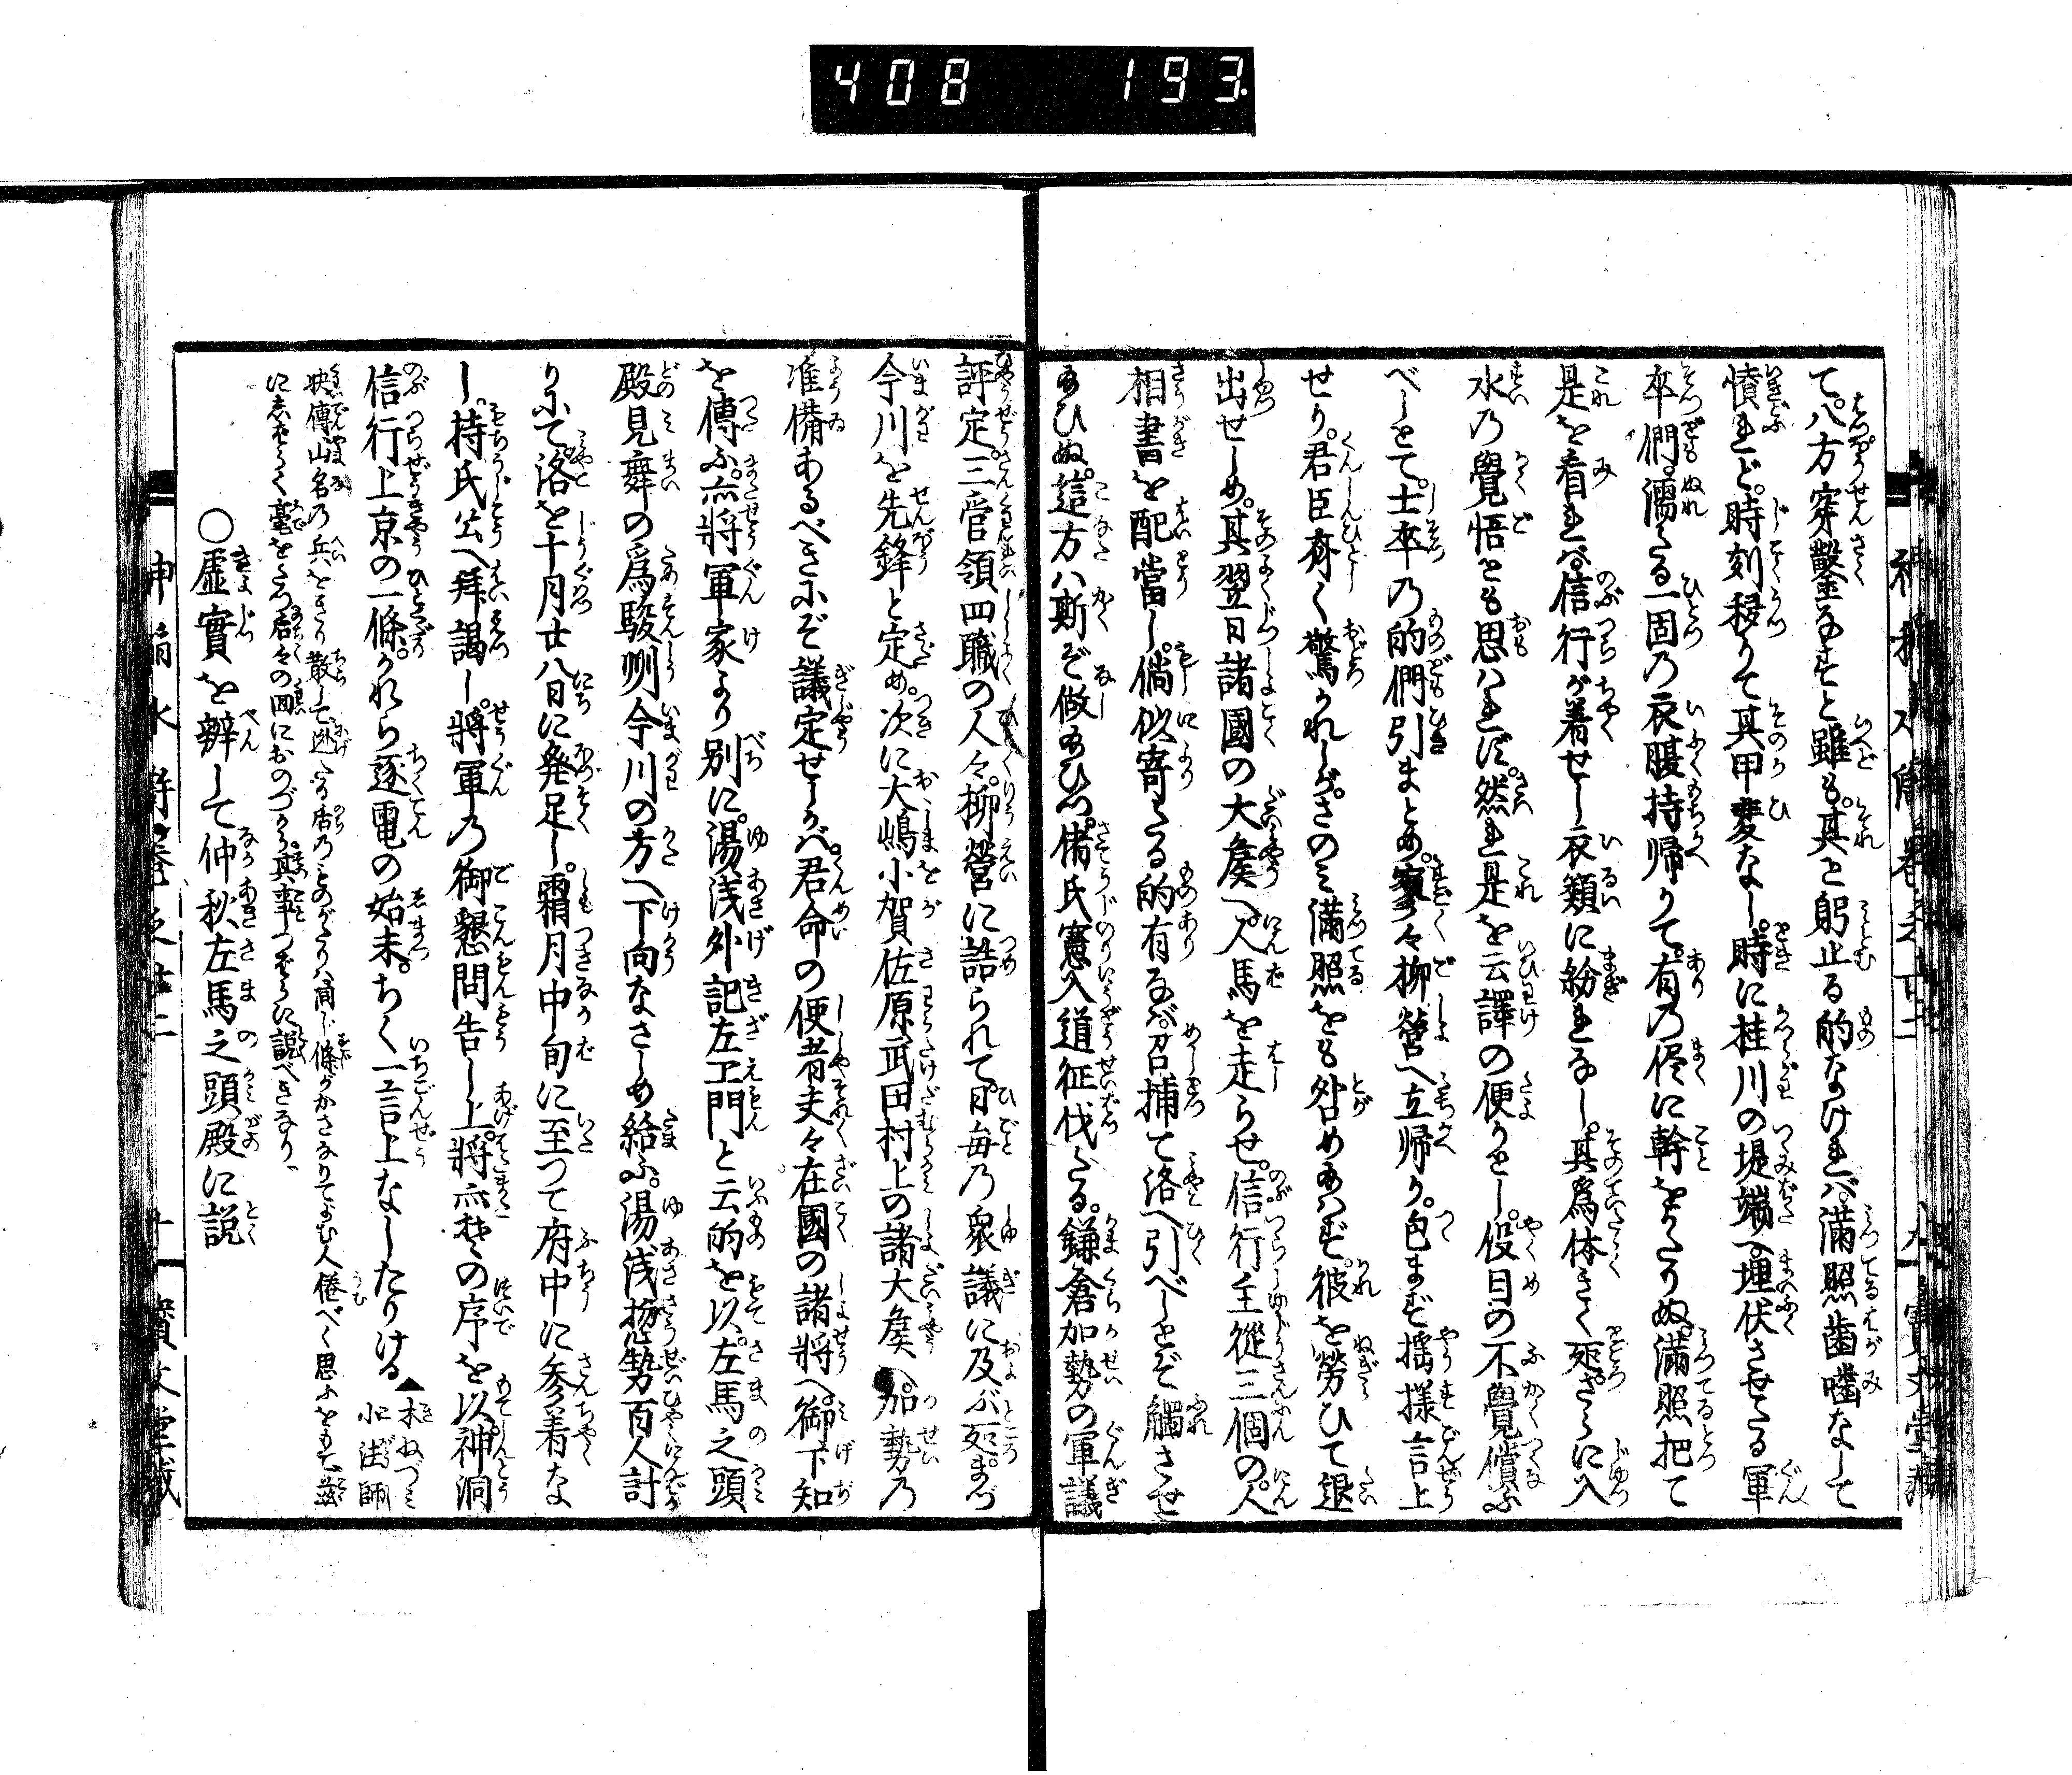 408 193.
て。八方穿鑿なすと雖も。其と躬止る的なけれバ。満照歯噛なして
憤れど。時刻移りて其甲斐なし。時に桂川の堤端へ。埋伏させたる軍
卒們。濡たる一固の衣服持帰りて。有乃侭に幹をかたりぬ。満照把て
是を看れバ。信行が着せし衣類に紛れなし。其為体きく。死ざらに入
水乃覺悟とも思ハれず。然れ是を云譯の便りとし。役目の不覺償ふ
べしとて。士卒乃的們引まとめ。寥々柳營へ立帰り。包まず揺様言上
せり。君臣齊く驚かれしが。さのミ満照をも咎め給ハず。彼を勞ひて退
出せしめ。其翌日諸國の大矦へ。人馬を走らせ。信行主從三個の。人
相書を配當し。倘似寄たる的有るならバ。召捕て洛へ引べしとぞ觸させ
給ひぬ。這方ハ斯ぞ做給ひつ。偖氏憲入道征伐たる。鎌倉加勢の軍議
評定。三管領四職の人々。柳營に詰られて。日毎乃衆議に及ぶ処。まづ
今川を先鋒と定め。次に大嶋小賀佐原武田村上の諸大矦へ。加勢乃
准備あるべきにぞ議定せしかバ。君命の便者夫々在國の諸將へ。御下知
を傳ふ。亦將軍家より別に。湯浅外記左エ門と云的を以。左馬之頭
殿見舞の為駿州今川の方へ下向なさしめ給ふ。湯浅揔勢百人計
りにて。洛を十月廿八日に発足し。霜月中旬に至つて府中に参着な
し。持氏公へ拜謁し。將軍乃御懇問告し上。將亦其の序を以。神洞
信行上京の一條。かれら逐電の始末。ちく一言上なしたりける▲木ねづミ
小法師
快傳山名の兵をきり散して逃げたる后乃ものがたりハ肩に條がかさなりてよむ人倦べく思ふをもて茲
にしばらく毫をとゞめ后々の回におのづから其事つばらに説べきなり、
○虛實を辨して仲秋左馬之頭殿に説